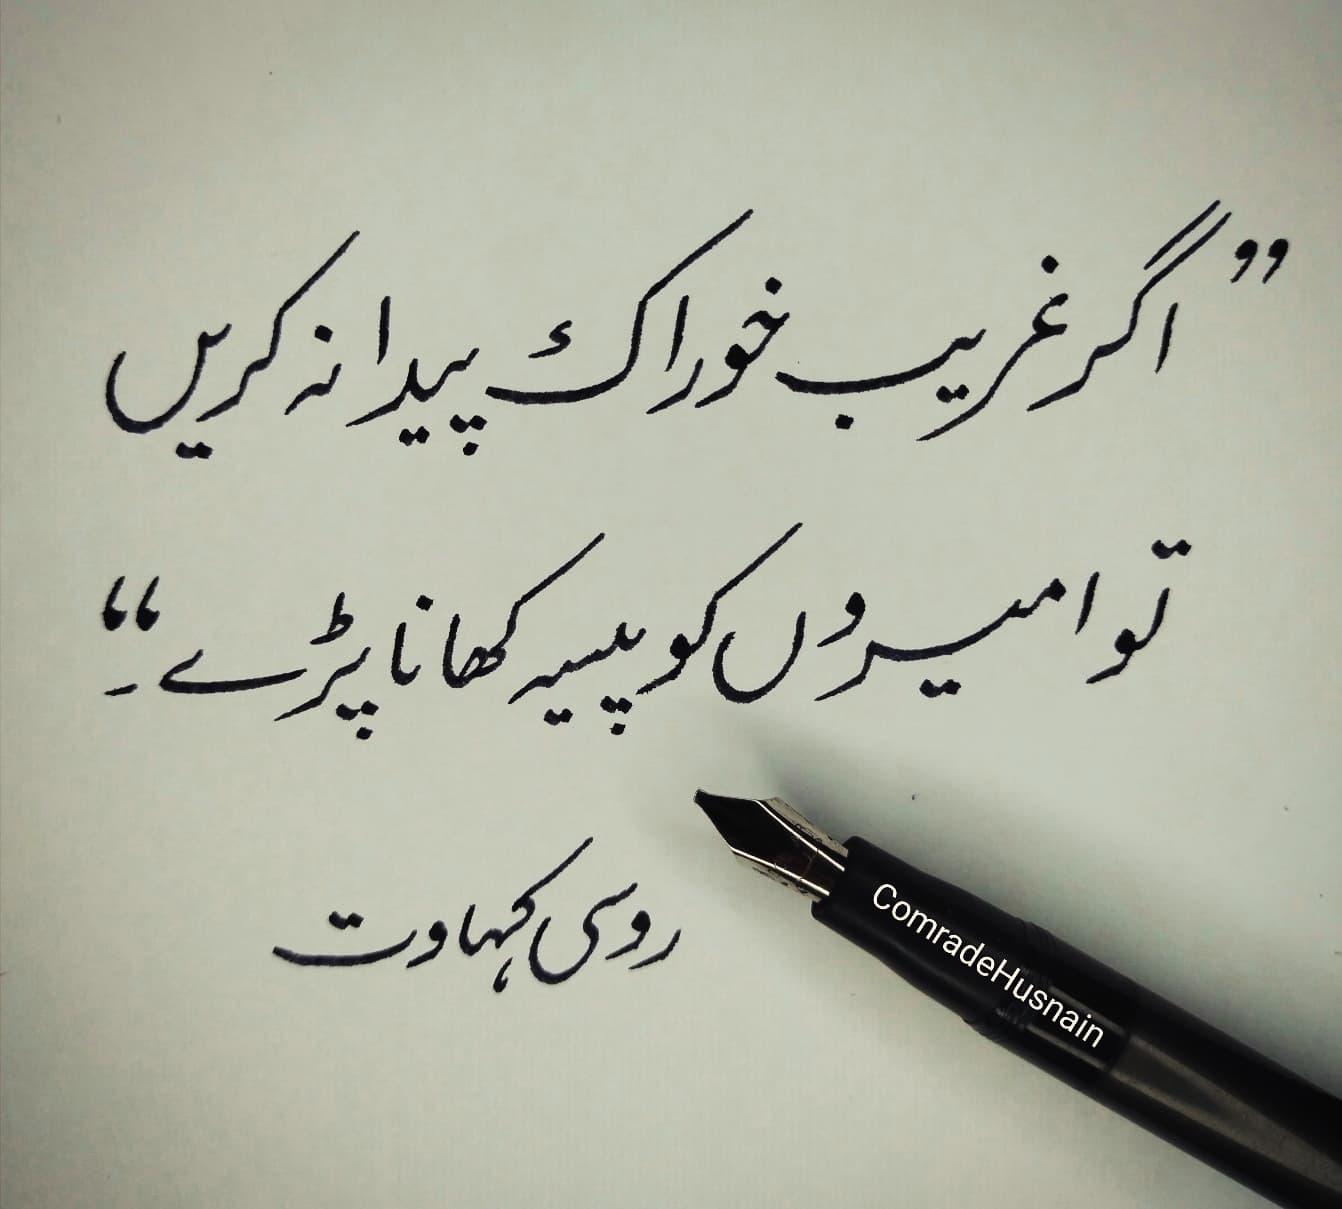 ”اگر غریب خوراک پیدا نہ کریں
تو امیروں کو پیسہ کھانا پڑے۔“
روسی کہاوت
ComradeHusnain